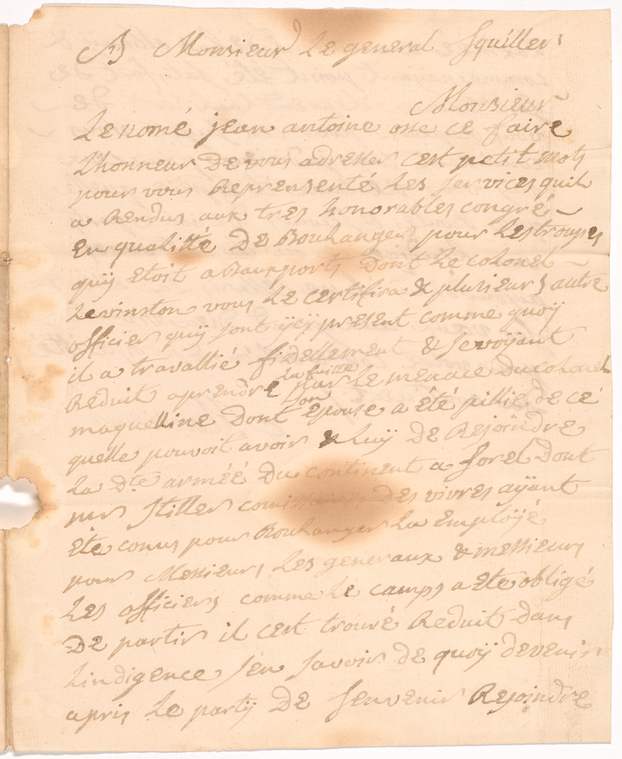 A Monsieur Le general Squiller
Monsieur
Le nomé jean antoine ose ce faire
L'honneur De vous adresser c'est petit mots
pour vous Reprensenté Les services quil
a Rendus aux tres honorables congré
En qualitté De Boulanger pour Les troupes
quÿ etoit a Dauxports Dont Le colonel
Levinston vous Le certifira & plusieurs autre
officiers quÿ sont ÿcÿ present comme quoÿ
il a travallié fidellement & se voÿant
Reduit a prendre La fuitte par Le menace Du colonel
maquelline Dont son Epouse a été pillié De cé
quelle pouvoit avoir & Luÿ De Rejoindre
La Dte armée Du continent a forel Dont
mrs Stiller comissaire Des vivres aÿant
Ete conus pour Boulanger La Employé
pour Messieurs Les generaux & messieurs
Les officiers comme Le camps a Ete obligé
De partir il c'est trouvé Reduit Dans
Lindigence sen savoir De quoÿ Devenir
apris Le partÿ De senvenir Rejoindre